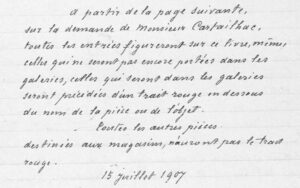 A partir de la page suivante,
sur la demande de Monsieur Cartailhac,
toutes les entrées figureront sur ce livre, même,
celles qui ne seront pas encore portées dans les
galeries, celles qui seront dans les galeries
seront précédées d'un trait rouge en dessous
du nom de la pièce ou de l'objet.
- Toutes les autres pièces
destinées aux magasins, n'auront pas le trait
rouge.
15 juillet 1907